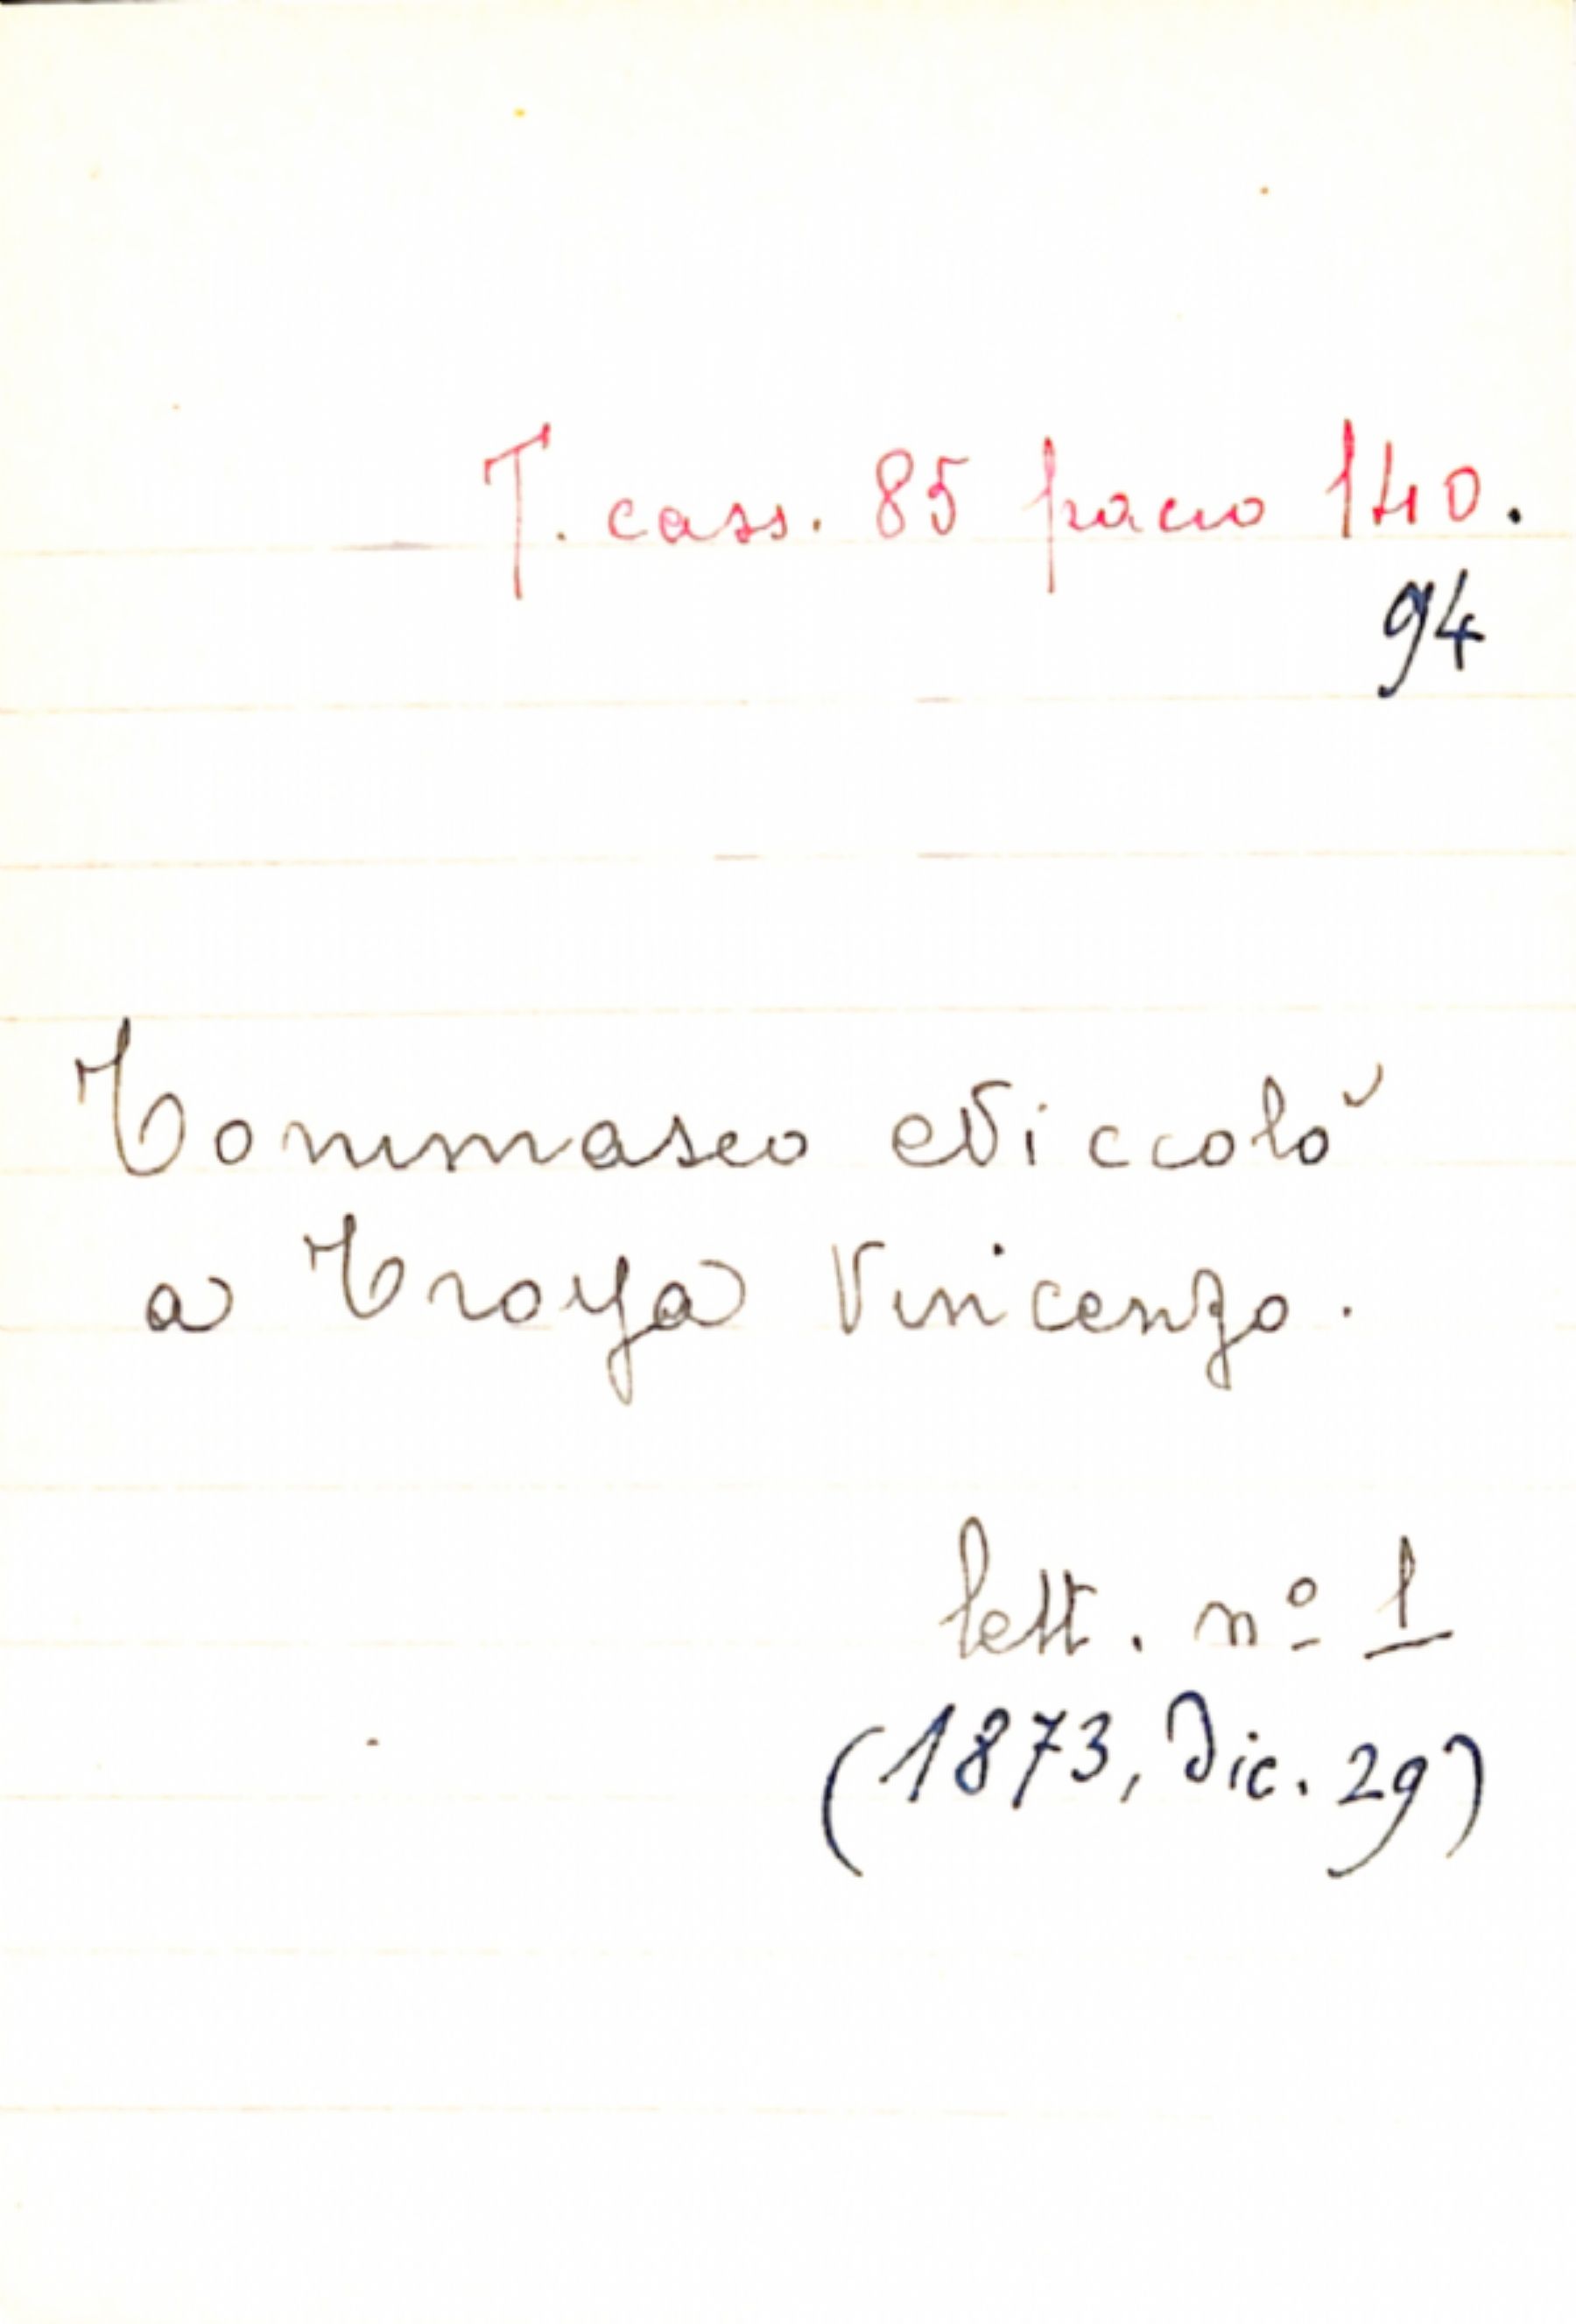 T. cass. 85 pacco 140.
94
Tommaseo Niccolò
a Troya Vincenzo.
lett. nº 1
(1873, Dic. 29)